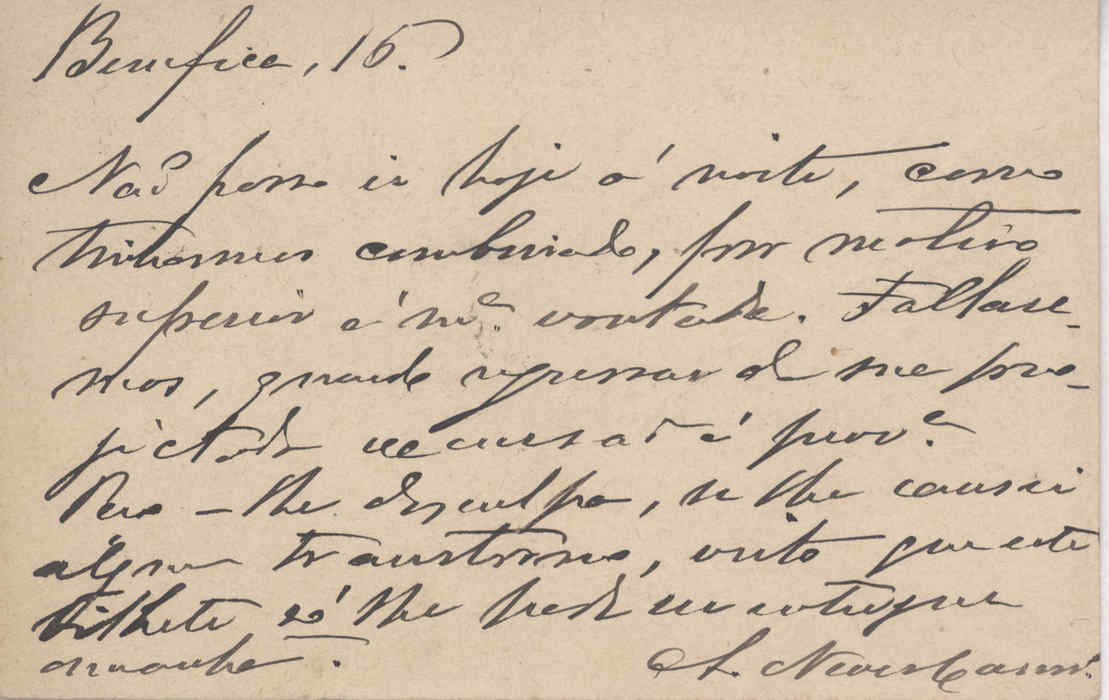 Bemfica, 16.
Não posso ir hoje á noite, como
tinhamos combinado, por motivo
superior á mª vontade. Fallare-
mos, quando regressar de me pro-
jectada excursão á provª.
Peço-lhe desculpa, se lhe causei
algum transtorno, visto que este
bilhete só lhe pode ser entregue
amanhã.
A. Neves